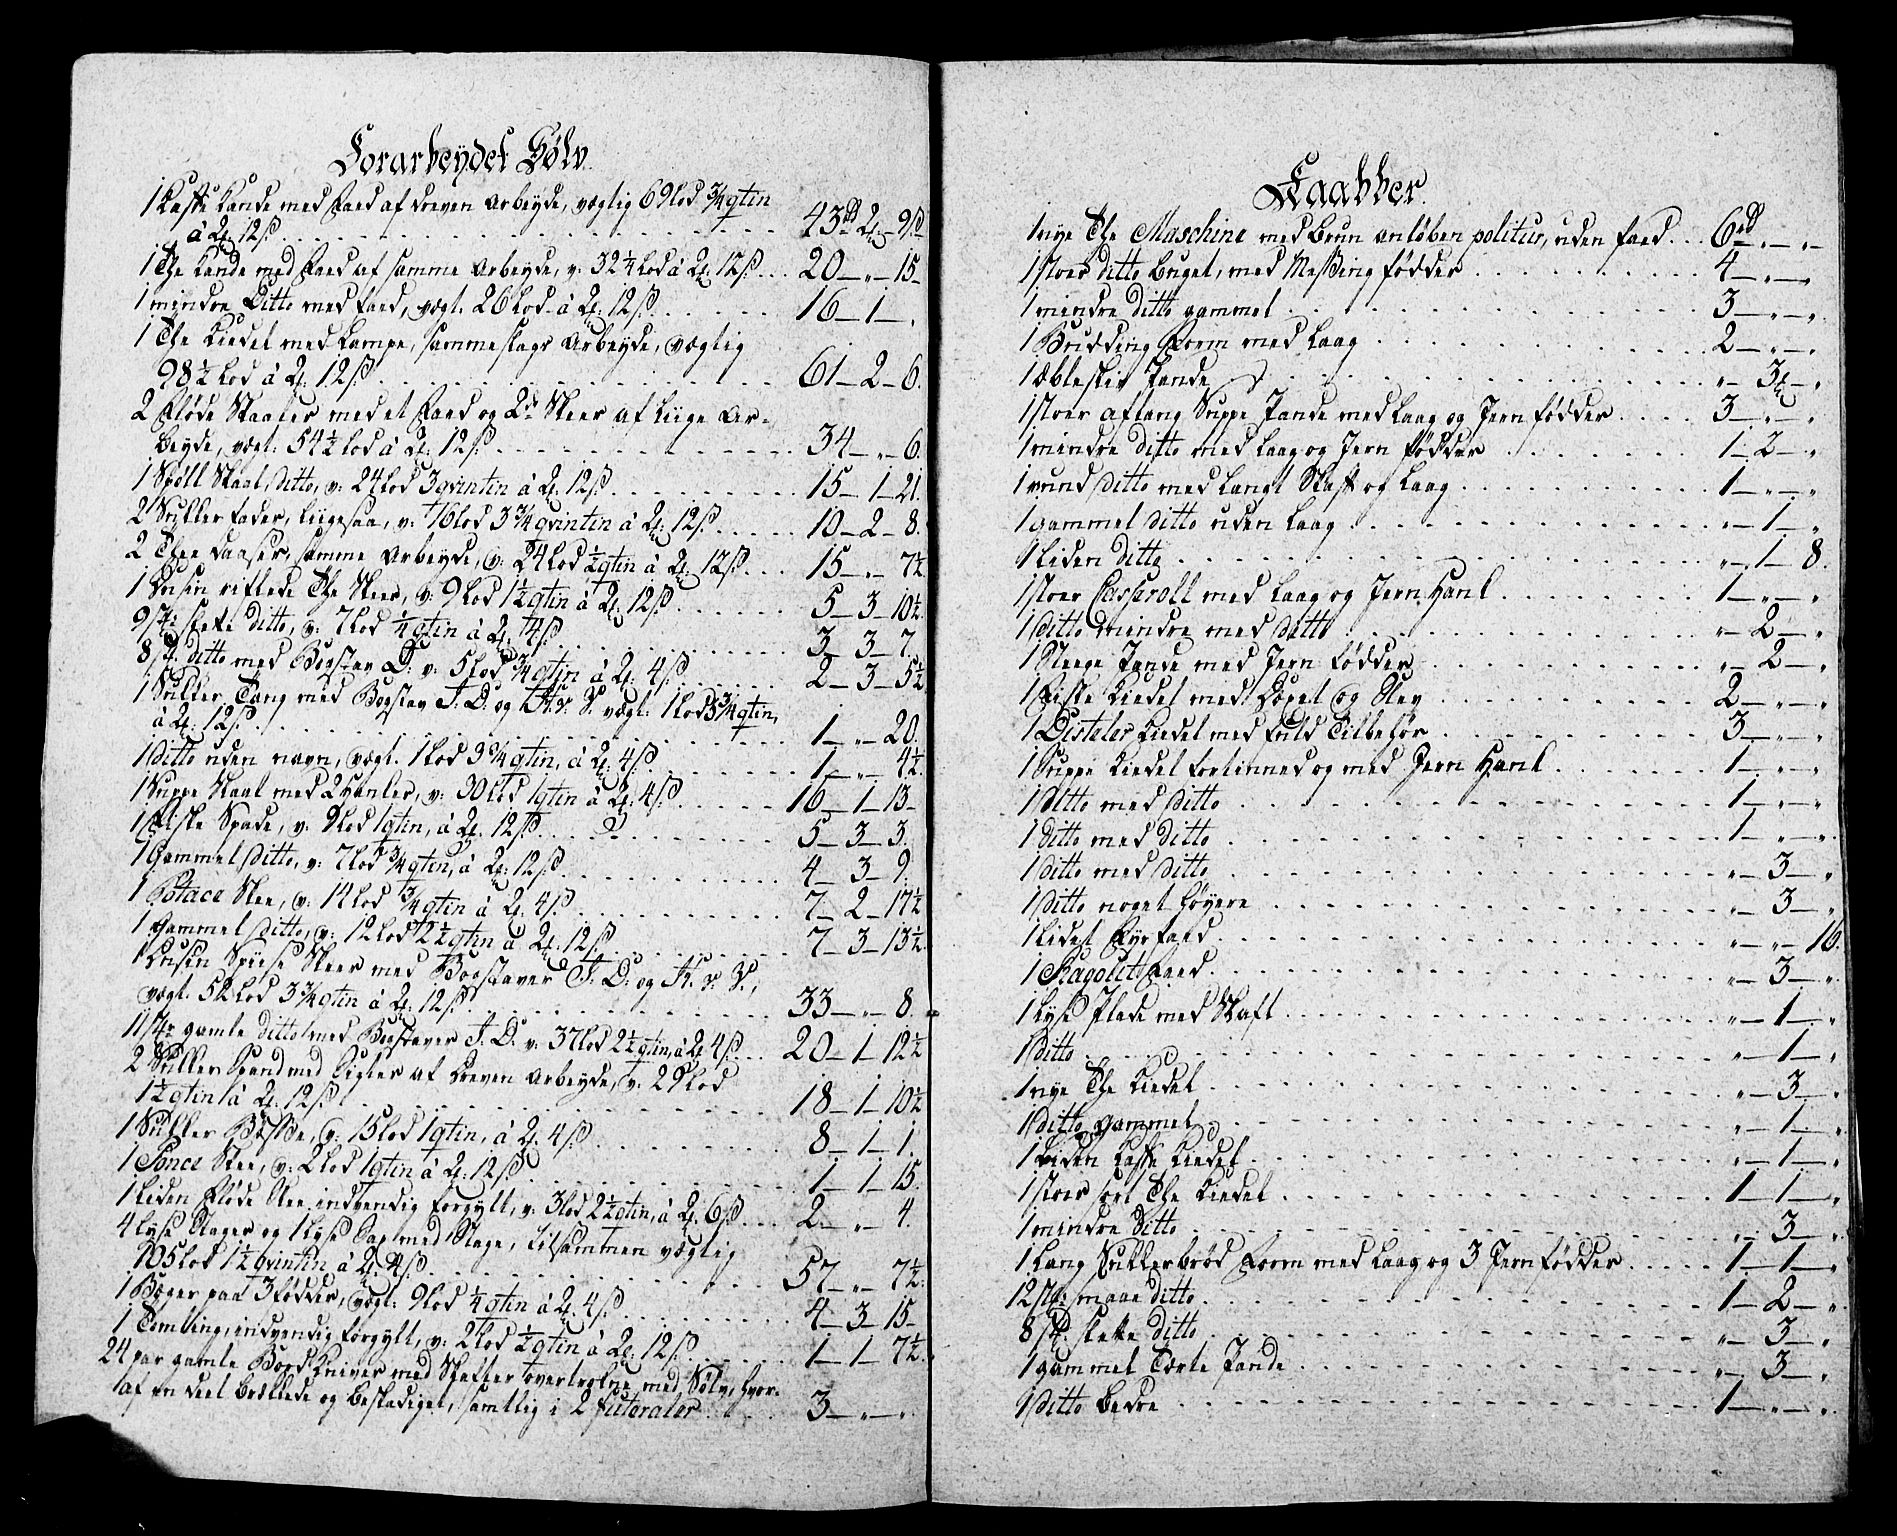 Forarbeydet Sølv.
1 Kaffe Kande med Faed af dreven Arbeyde, vegtig 69 lod 3/4 qtin
à 2 12 ß . . . 43 rd 2 - 9 ß
1 The Kande med Faed af samme Arbeyde, v: 32 1/4 lod à 2 12 ß . . . 20 — " — 15
1 mindre Ditto med faed, vegt. 26 lod à 2 12 ß . . . 16 — 1 — "
1 The Kiedel med Lampe, sammeslags Arbeyde, vegtig
98 1/2 lod à 2 12 ß . . . 61 — 2 — 6.
2 Fløde Skaaler med et Faed og 2de Skeer af liige Ar-
beyde, vegt: 54 1/2 lod à 2 12 ß . . . 34 — " — 6.
1 Spøll Skaal ditto, v: 24 lod 3 qvintin à 2 12 ß . . . 15 — 1 — 21.
2 Sukker fader, liigesaa, v: 16 lod 3 3/4 qvintin à 2 12 ß . . . 10 — 2 — 8.
2 Thee Daaser, samme Arbeyde, v: 24 lod 1/2 qtin à 2 12 ß . . . 15 — " — 7 1/2.
1 Dusin riflede The Skeer, v: 9 lod 1 1/2 qtin à 2 12 ß . . . 5 — 3 — 10 1/2.
9 St: slette ditto, v: 7 lod 1/4 qtin à 2 4 ß . . . 3 — 3 — 7.
8 St. ditto med Bogstav D. v: 5 lod 3/4 qtin à 2 4 ß . . . 2 — 3 — 5 1/2
1 Sukker Tang med Bogstav J. D. og K. v. S. vegt: 1 lod 3 3/4 qtin,
à 2 12 ß . . . 1 — " — 20.
1 Ditto uden navn, vegt. 1 lod 3 3/4 qtin, à 2 4 ß . . . 1 — " — 4 1/2.
1 Suppe Skaal med 2 Hanker, v: 30 lod 1 qtin à 2 4 ß . . . 16 — 1 — 13
1 Fiske Spade, v: 9 lod 1 qtin, à 2 12 ß . . . 5 — 3 — 3.
1 Gammel ditto, v: 7 lod 3/4 qtin, à 2 12 ß . . . 4 — 3 — 9.
1 Potace Skee, v: 14 lod 3/4 qtin à 2 4 ß . . . 7 — 2 — 17 1/2
1 Gammel ditto, v: 12 lod 2 1/2 qtin à 2 12 ß . . . 7 — 3 — 13 1/2.
1 Dusin Spiise Skeer med Bogstaver J. D. og K. v. S.,
vegt. 52 lod 3 3/4 qtin à 2 12 ß . . . 33 — " — 8.
11 St: gamle ditto med Bogstaver J. D. v: 37 lod 2 1/2 qtin, à 2 4 ß . . . 20 — 1 — 12 1/2
2 Sukker Spand med Sigter af dreven Arbeyde, v: 29 lod
1 1/2 qtin à 2 12 ß . . . 18 — 1 — 10 1/2
1 Sukker Bøsse, v: 15 lod 1 qtin, à 2 4 ß . . . 8 — 1 — 1.
1 Ponce Skee, v: 2 lod 1 qtin à 2 12 ß . . . 1 — 1 — 15.
1 liden Fløde Skee indvendig forgyldt, v: 3 lod 2 1/2 qtin, à 2 6 ß . . . 2 — " — 4.
4 Lyse Stager og 1 Lyse Sax med Stage, tilsammen vegtig
105 lod 1 1/2 qvintin à 2 4 ß . . . 57 — " — 7 1/2.
1 Bæger paa 3 fødder, vegt: 9 lod 1/4 qtin à 2 4 ß . . . 4 — 3 — 15
1 Tomling, indvendig forgylt, v: 2 lod 1/2 qtin à 2 12 ß . . . 1 — 1 — 7 1/2.
24 par gamle Bord Kniver med Skafter overtrokne med Sølv, hvor-
af en deel brækkede og beskadiget, samtlig i 2 futeraler . . . 3 — " — "
Kaabber.
1 nye The Maschine med brun anløben politur, uden faed . . . 6 rd — " — "
1 stoer ditto buget, med Messing fødder . . . 4 — " — "
1 mindre ditto gammel . . . 3 — " — "
1 Budding Form med Laag . . . 2 — " — "
1 Æbleskiv Pande . . . " — 3 — "
1 stoer aflang Suppe Pande med Laag og Jern fødder . . . 3 — " — "
1 mindre ditto med Laag og Jern fødder . . . 1 — 2 — "
1 rund ditto med Langt Skaft og Laag . . . 1 — " — "
1 gammel ditto uden Laag . . . " — 1 — "
1 Liden ditto . . . " — 1 — 8.
1 stoer Casseroll med Laag og Jern Hank . . . 1 — " — "
1 ditto mindre med ditto . . . " — 2 — "
1 Steege Pande med Jern fødder . . . " — 2 — "
1 Fiske Kiedel med Sopel og Slev . . . 2 — " — "
1 Disteler Kiedel med fuld Tilbehør . . . 3 — " — "
1 Suppe Kiedel fortinned og med Jern Hank . . . 1 — " — "
1 ditto med ditto . . . 1 — " — "
1 ditto med ditto . . . 1 — " — "
1 ditto med ditto . . . " — 3 — "
1 ditto noget høyere . . . " — 3 — "
1 lidet Fyrfaed . . . " — " — 16.
1 Ragolit Faed . . . " — 3 — "
1 Lyse Plade med Skaft . . . " — 1 — "
1 ditto . . . " — 1 — "
1 nye The Kiedel . . . " — 3 — "
1 ditto gammel . . . " — 1 — "
1 Liden Kaffe Kiedel . . . " — 1 — "
1 stoer sort The Kiedel . . . 1 — 1 — "
1 mindre ditto . . . " — 3 — "
1 Lang Sukkerbrød Form med Laag og 3 Jern fødder . . . 1 — 1 — "
12 St: smaae ditto . . . 1 — 2 — "
8 St. slette ditto . . . " — 3 — "
1 gammel Tærte Pande . . . " — 3 — "
1 ditto bedre . . . 1 — " — "